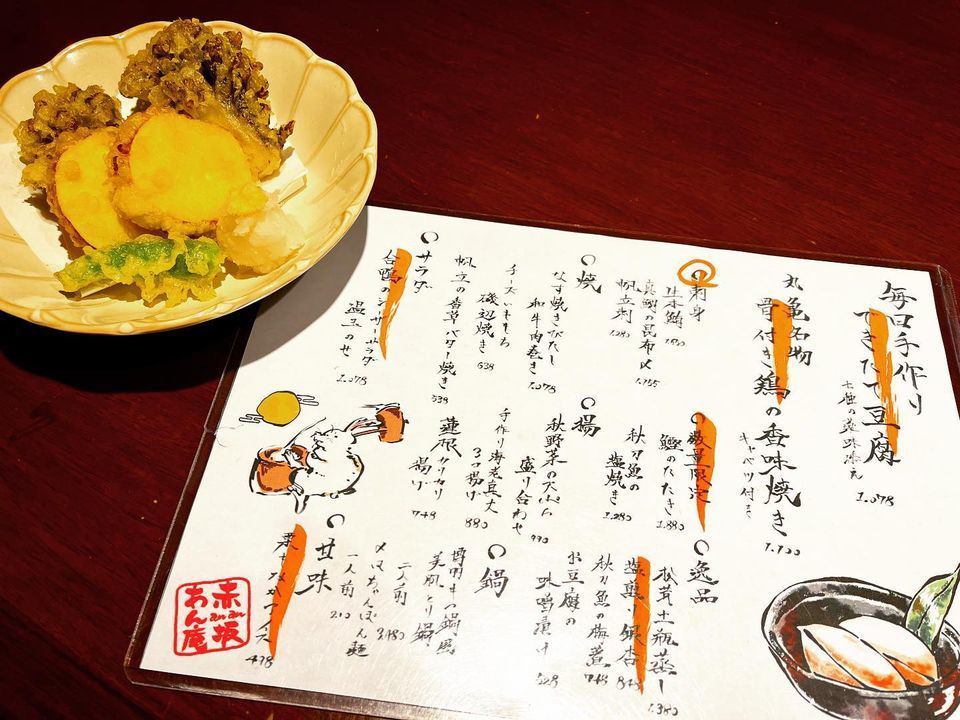 毎日手作り
できたて豆腐
十種の薬味添え
1.078
丸亀名物
骨付き鶏の香味焼き
キャベツ付き
1.720
刺身
真鯛の昆布〆
1.155
帆立刺
1.280
数量限定
鰹のたたき
1.880
逸品
松茸土瓶蒸し
1.380
塩煎り銀杏
秋刀魚の梅煮
748
お豆腐の
味噌漬け
528
焼
なす焼きびたし
和牛肉巻き
1.078
チーズいももち
磯辺焼き
638
帆立の香草バター焼き
538
秋刀魚の
塩焼き
1.280
揚
秋野菜の天ぷら
盛り合わせ
990
手作り海老真丈
3つ揚げ
880
蓮根カリカリ
揚げ
748
サラダ
合鴨のシーザーサラダ
温玉のせ
1.078
鍋
博田もつ鍋風
美肌とり鍋
二人前
3.480
〆はちゃんぽん麺
一人前
210
甘味
438
赤坂
あん庵